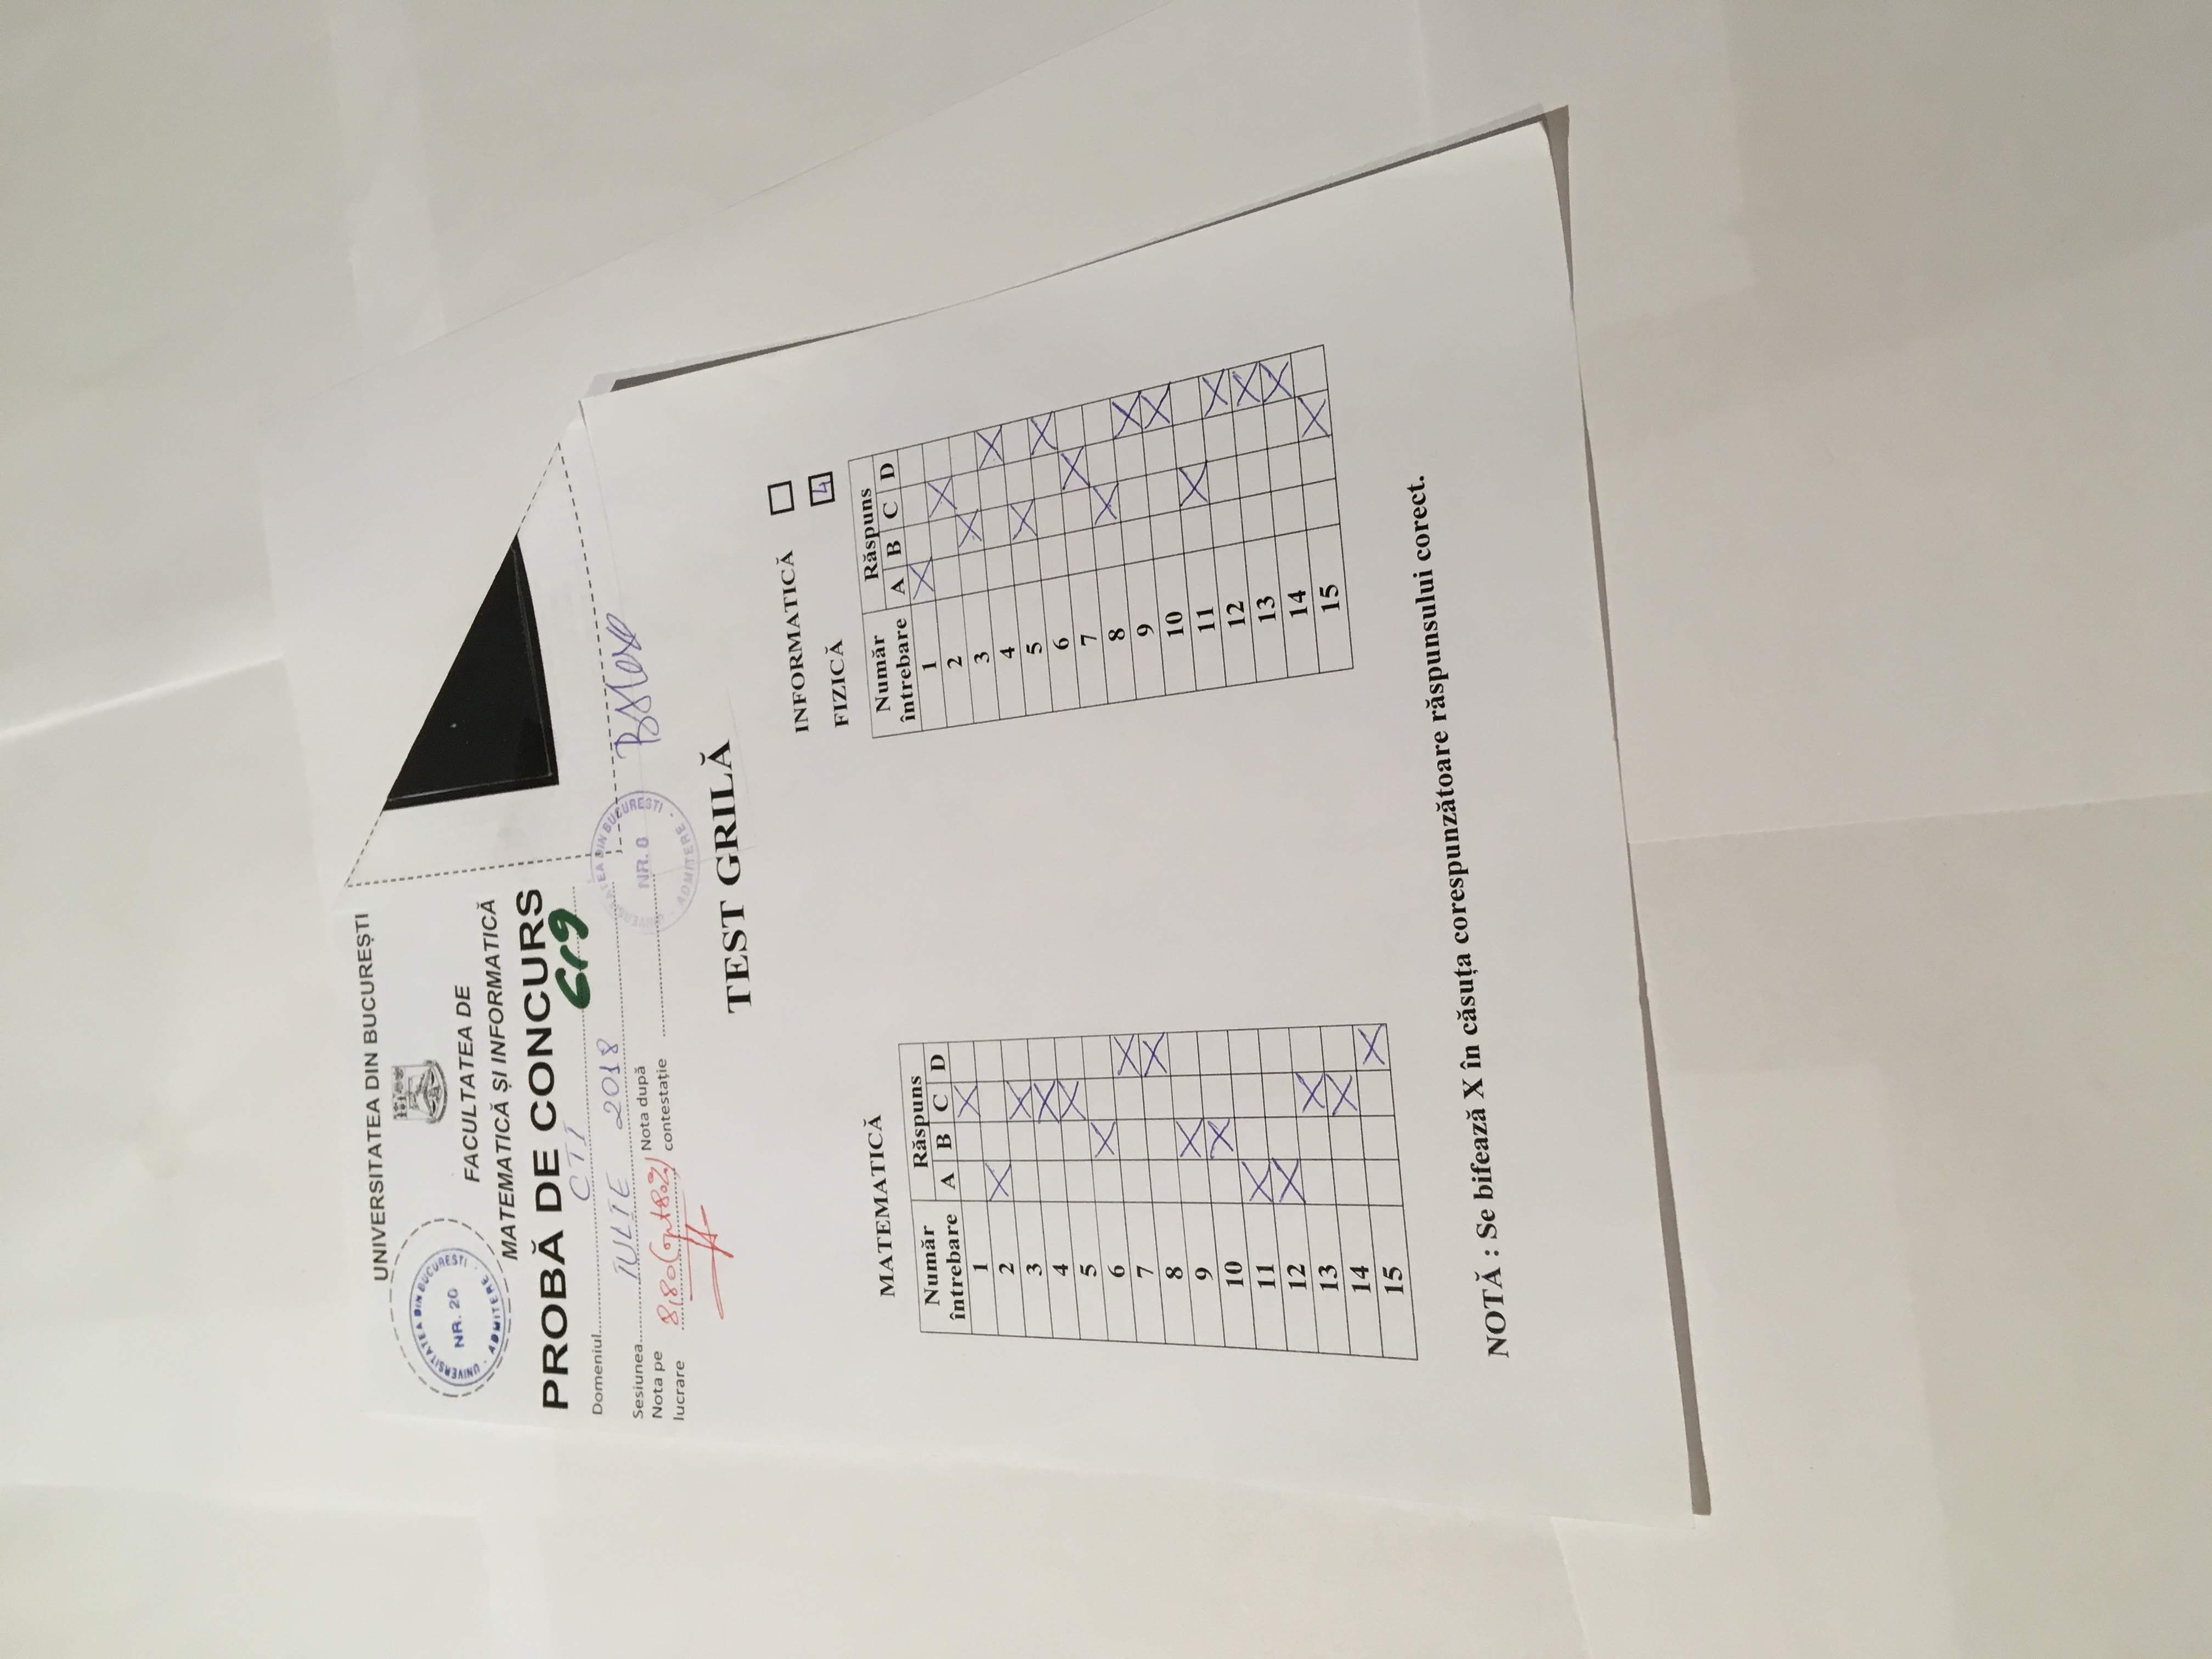 UNIVERSITATEA DIN BUCUREȘTI
UNIVERSITATEA DIN BUCUREȘTI
NR. 20
- ADMITERE -
FACULTATEA DE
MATEMATICĂ ȘI INFORMATICĂ
PROBĂ DE CONCURS
Domeniul CTI
Sesiunea IULIE 2018
Nota pe lucrare 8,80 (opt 80%)
Nota după contestație
UNIVERSITATEA DIN BUCUREȘTI
NR. 8
- ADMITERE -
TEST GRILĂ
INFORMATICĂ
FIZICĂ 4
MATEMATICĂ
Număr întrebare Răspuns
A B C D
1 X
2 X
3 X
4 X
5 X
6 X
7 X
8 X
9 X
10 X
11 X
12 X
13 X
14 X
15 X
Număr întrebare Răspuns
A B C D
1 X
2 X
3 X
4 X
5 X
6 X
7 X
8 X
9 X
10 X
11 X
12 X
13 X
14 X
15 X
NOTĂ : Se bifează X în căsuța corespunzătoare răspunsului corect.